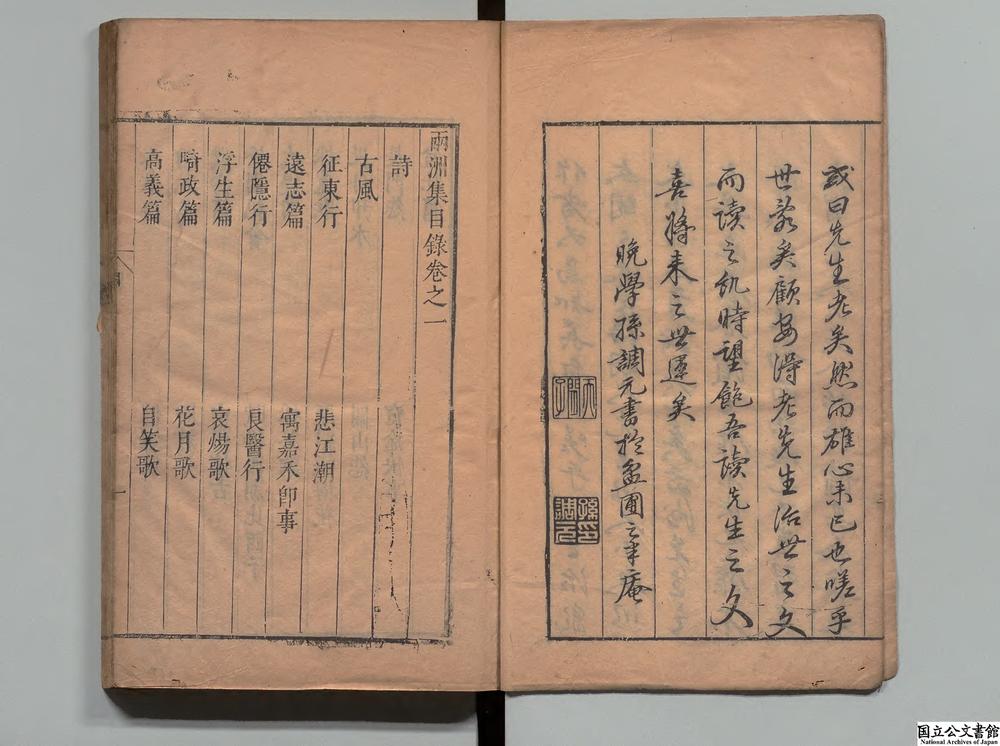 或曰先生老矣然而雄心未已也嗟乎
世亂矣顧安得老先生治世之文
而讀之飢時望飽吾讀先生之文
喜將來之世運矣
晚學孫調元書於盆圃之聿庵
孫印調元
兩洲集目錄卷之一
詩
古風
征東行 悲江潮
遠志篇 寓嘉禾即事
僊隱行 良醫行
浮生篇 哀煬歌
畸政篇 花月歌
高義篇 自笑歌
一
国立公文書館
National Archives of Japan